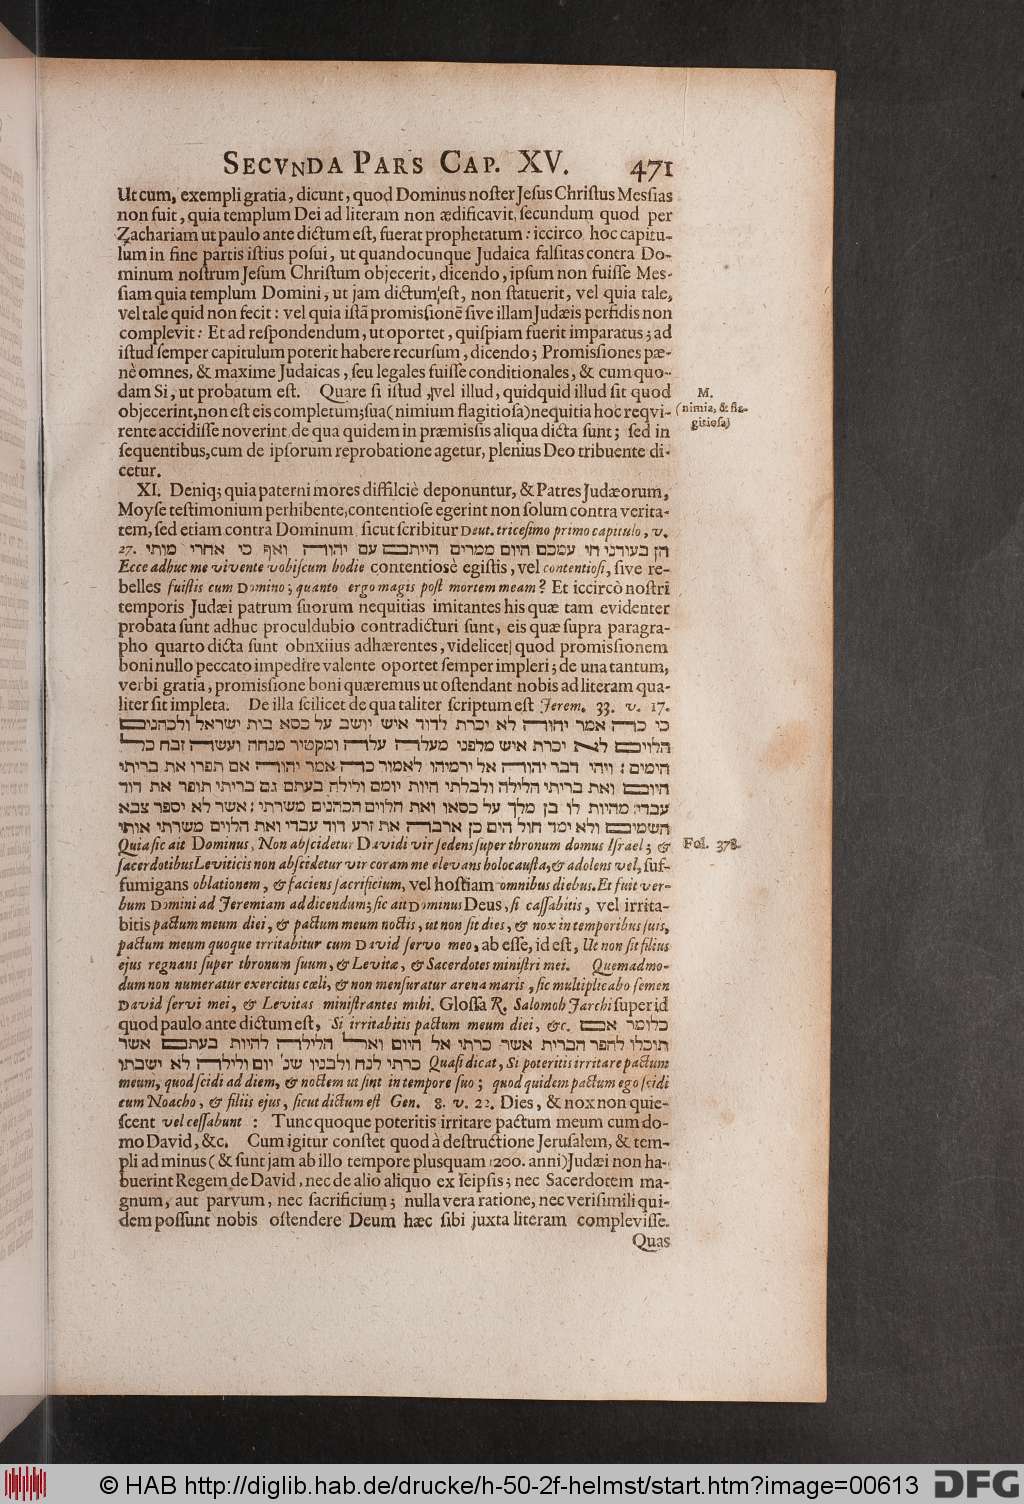 SECVNDA PARS CAP. XV. 471
Ut cum, exempli gratia, dicunt, quod Dominus noster Jesus Christus Messias
non fuit, quia templum Dei ad literam non ædificavit, secundum quod per
Zachariam ut paulo ante dictum est, fuerat prophetatum: iccirco hoc capitu-
lum in fine partis istius posui, ut quandocunque Judaica falsitas contra Do-
minum nostrum Jesum Christum objecerit, dicendo, ipsum non fuisse Mes-
siam quia templum Domini, ut jam dictum est, non statuerit, vel quia tale,
vel tale quid non fecit: vel quia istã promissionē sive illam Judæis perfidis non
complevit: Et ad respondendum, ut oportet, quispiam fuerit imparatus; ad
istud semper capitulum poterit habere recursum, dicendo; Promissiones pæ-
nè omnes, & maxime Judaicas, seu legales fuisse conditionales, & cum quo-
dam Si, ut probatum est. Quare si istud, vel illud, quidquid illud sit quod
M.
objecerint, non est eis completum; sua (nimium flagitiosa) nequitia hoc reqvi-
(nimia, & fla-
gitiosa)
rente accidisse noverint de qua quidem in præmissis aliqua dicta sunt; sed in
sequentibus, cum de ipsorum reprobatione agetur, plenius Deo tribuente di-
cetur.
XI. Deniq; quia paterni mores difficilè deponuntur, & Patres Judæorum,
Moyse testimonium perhibente, contentiose egerint non solum contra verita-
tem, sed etiam contra Dominum sicut scribitur Deut. tricesimo primo capitulo, v.
27. הן בעורני חי עמכם היום ממרים הייתם עם יהוה ואף כי אחרי מותי
Ecce adhuc me vivente vobiscum hodie contentiosè egistis, vel contentiosi, sive re-
belles fuistis cum Domino; quanto ergo magis post mortem meam? Et iccircò nostri
temporis Judæi patrum suorum nequitias imitantes his quæ tam evidenter
probata sunt adhuc proculdubio contradicturi sunt, eis quæ supra paragra-
pho quarto dicta sunt obnxiius adhærentes, videlicet quod promissionem
boni nullo peccato impedire valente oportet semper impleri; de una tantum,
verbi gratia, promissione boni quæremus ut ostendant nobis ad literam qua-
liter sit impleta. De illa scilicet de qua taliter scriptum est Jerem. 33. v. 17.
כי כה אמר יהוה לא יכרת לדוד איש יושב על כסא בית ישראל ולכהנים
הלוים לא יכרת איש מלפני מעלה עלה ומקטיר מנחה ועשה זבח כל
הימים : ויהי דבר יהוה אל ירמיהו לאמור כה אמר יהוה אם תפרו את בריתי
היום ואת בריתי הלילה ולבלתי היות יומם ולילה בעתם גם בריתי תופר את דוד
עבדי מהיות לו בן מלך על כסאו ואת הלוים הכהנים משרתי : אשר לא יספר צבא
השמים ולא ימד חול הים כן ארבה את זרע דוד עבדי ואת הלוים משרתי אותי
Quia sic ait Dominus, Non abscidetur Davidi vir sedens super thronum domus Israel; &
Fol. 378.
sacerdotibus Leviticis non abscidetur vir coram me elevans holocausta, & adolens vel, suf-
fumigans oblationem, & faciens sacrificium, vel hostiam omnibus diebus. Et fuit ver-
bum Domini ad Jeremiam ad dicendum; sic ait Dominus Deus, si cassabitis, vel irrita-
bitis pactum meum diei, & pactum meum noctis, ut non sit dies, & nox in temporibus suis,
pactum meum quoque irritabitur cum David servo meo, ab esse, id est, Ut non sit filius
ejus regnans super thronum suum, & Levitæ, & Sacerdotes ministri mei. Quemadmo-
dum non numeratur exercitus cœli, & non mensuratur arena maris, sic multiplicabo semen
David servi mei, & Levitas ministrantes mihi. Glossa R. Salomoh Jarchi super id
quod paulo ante dictum est, Si irritabitis pactum meum diei, &c. כלומר אם
תוכלו להפר הברית אשר כרתי אל היום ואל הלילה להיות בעתם אשר
כרתי לנח ולבניו שנ' יום ולילה לא ישבתו Quasi dicat, Si poteritis irritare pactum
meum, quod scidi ad diem, & noctem ut sint in tempore suo; quod quidem pactum ego scidi
cum Noacho, & filiis ejus, sicut dictum est Gen. 8. v. 22. Dies, & nox non quie-
scent vel cessabunt : Tunc quoque poteritis irritare pactum meum cum do-
mo David, &c. Cum igitur constet quod à destructione Jerusalem, & tem-
pli ad minus (& sunt jam ab illo tempore plusquam 1200. anni) Judæi non ha-
buerint Regem de David, nec de alio aliquo ex seipsis; nec Sacerdotem ma-
gnum, aut parvum, nec sacrificium; nulla vera ratione, nec verisimili qui-
dem possunt nobis ostendere Deum hæc sibi juxta literam complevisse.
Quas
© HAB http://diglib.hab.de/drucke/h-50-2f-helmst/start.htm?image=00613 DFG